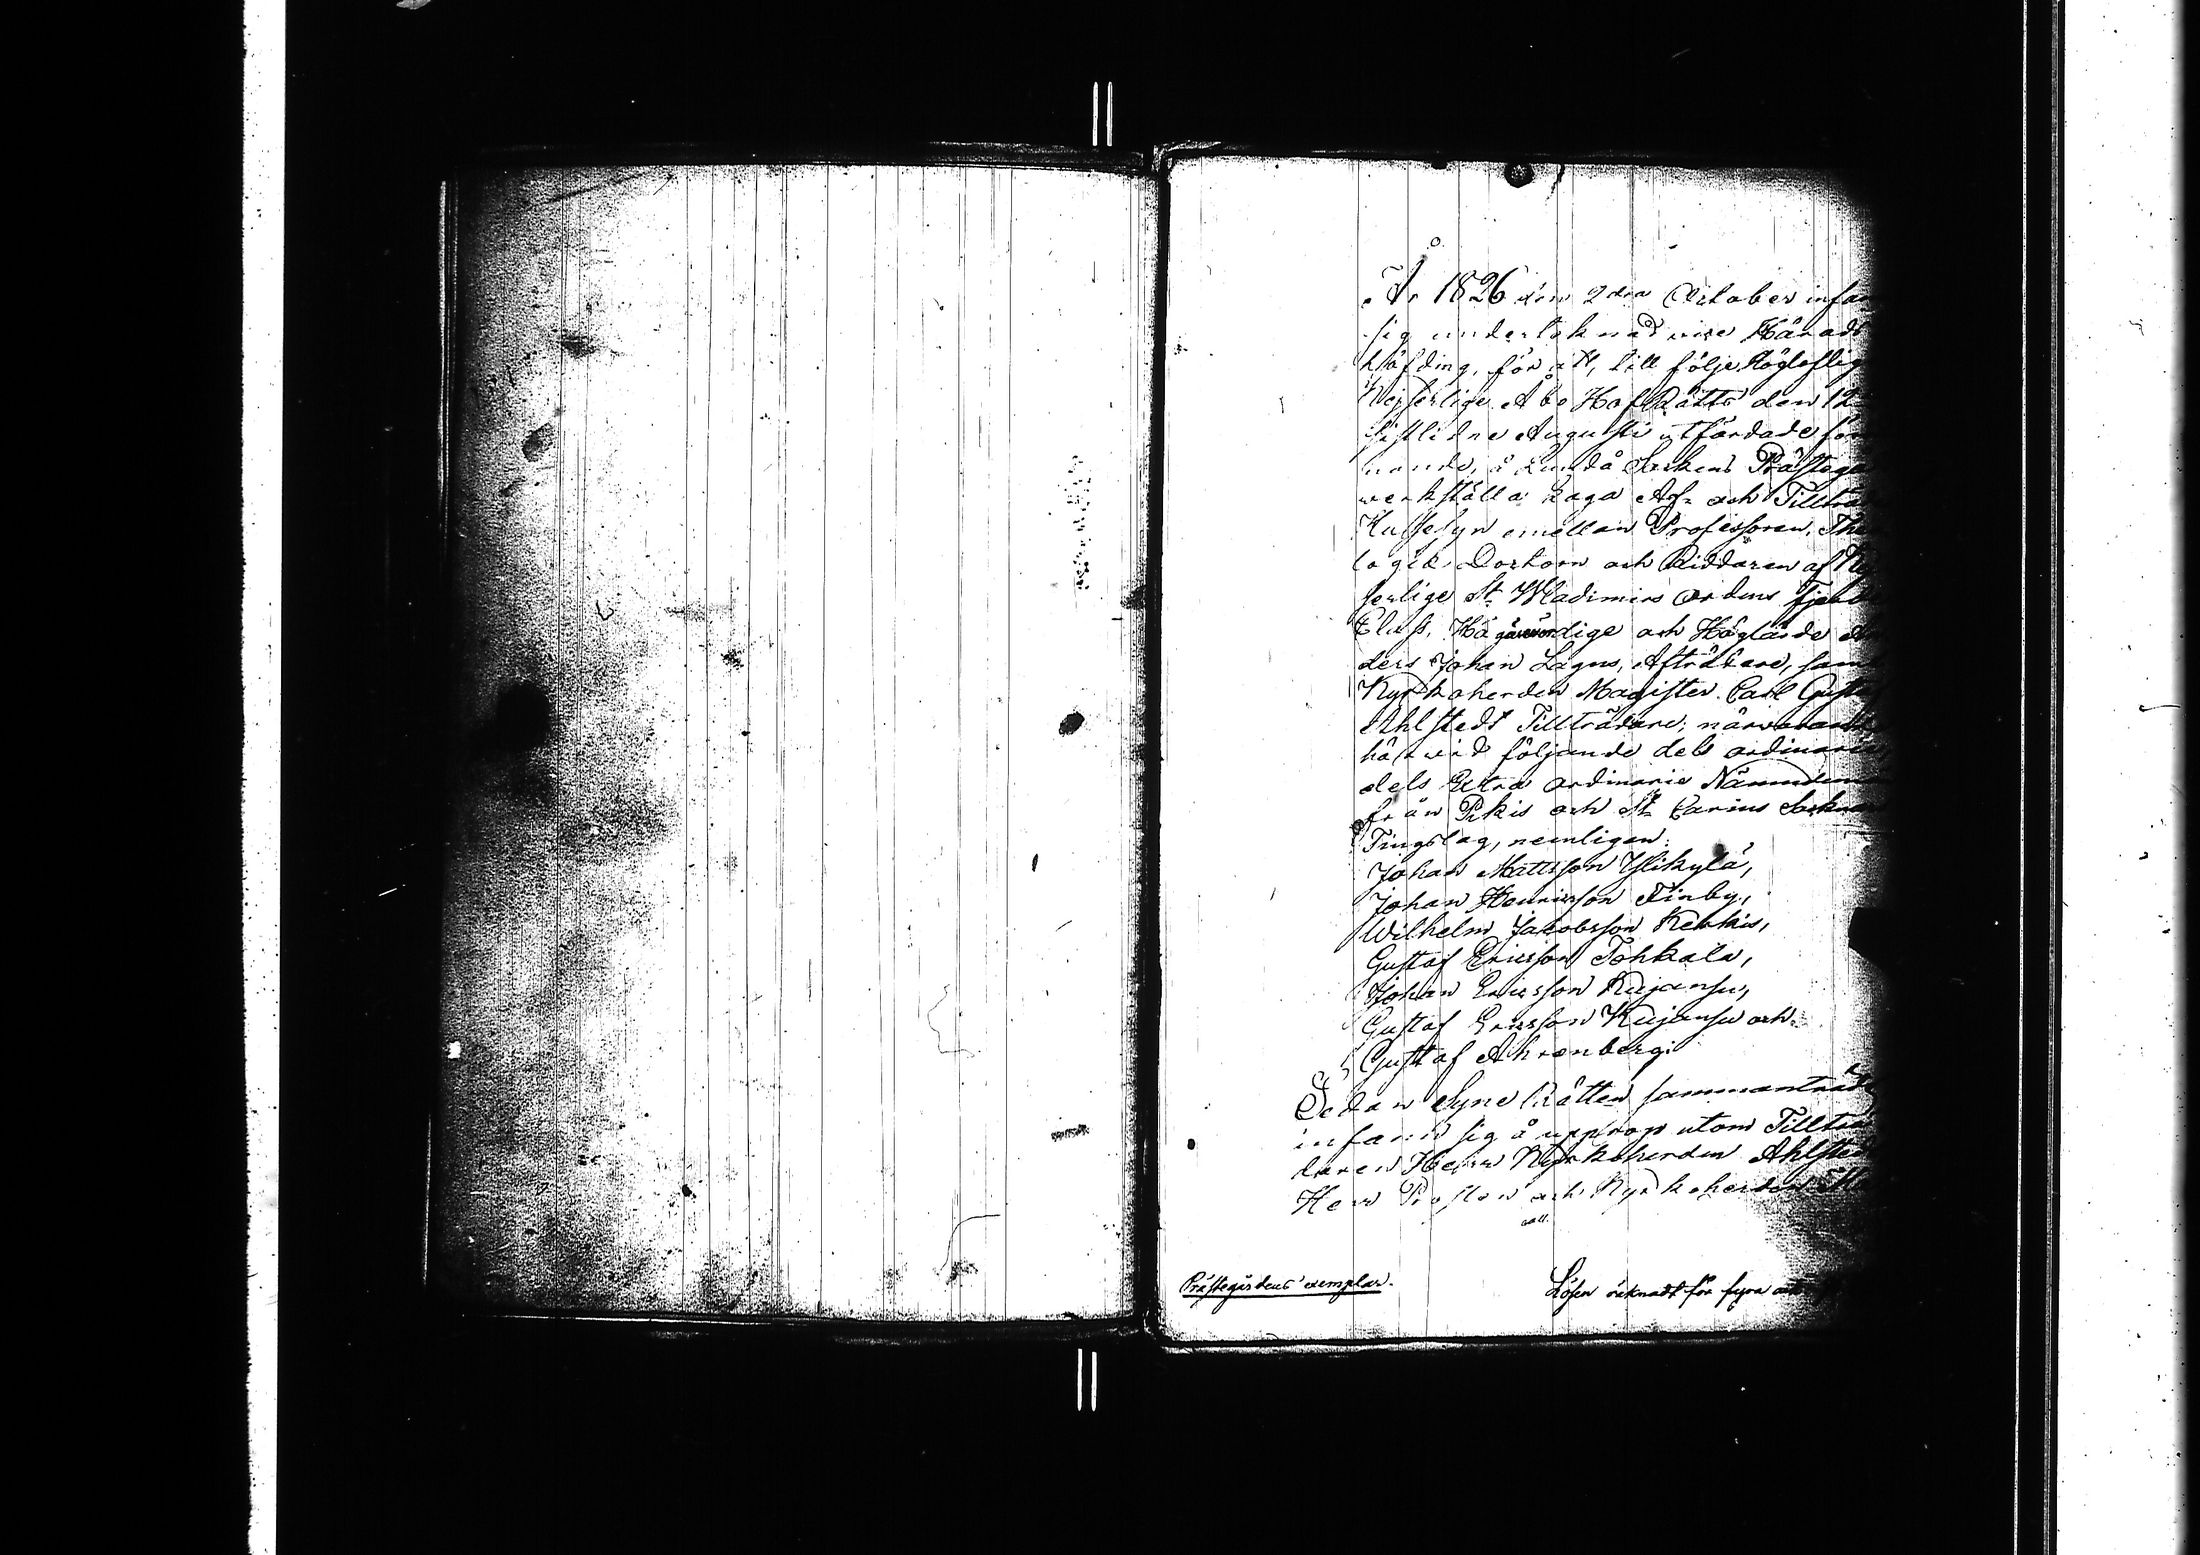 År 1826 den 2dra October infan
sig undertecknad vice Härads
höfding, för att, till följe Högloflig
Kejserlige Åbo HofRätts den 12
sistlidne Augusti utfärdade för
nande, å Lundå Sockens Prästega
verkställa laga Af- och Tillträ
Hussesyn emellan Professoren, Theo
logiæ Doctorn och Riddaren af Kej
serlige St Wladimirs Ordens fjerde
Class, Högärevördige och Höglärde An
ders Johan Lagus, Afträdare, samt
Kyrkoherden Magister Carl Gustaf
Ahlstedt Tillträdare; närvarande
härvid följande dels ordinarie
dels Extra ordinarie Nämndemän
från Pikis och St Carins Sockna
Tingslag, nemligen:
Johan Mattsson Ylikylä,
Johan Henricsson Finby,
Wilhelm Jacobsson Kekkis,
Gustaf Ericsson Tohkala,
Johan Ericsson Kujansu,
Gustaf Ericsson Kujansu och
Gustaf Ahrenberg.
Sedan Syne Rätten sammanträdt
infann sig å upprop utom Tillträ
daren Herr Kyrkoherden Ahlsted
Herr Prosten och Kyrkoherden
Prästegårdens exemplar.
Lösen räknadt för fyra